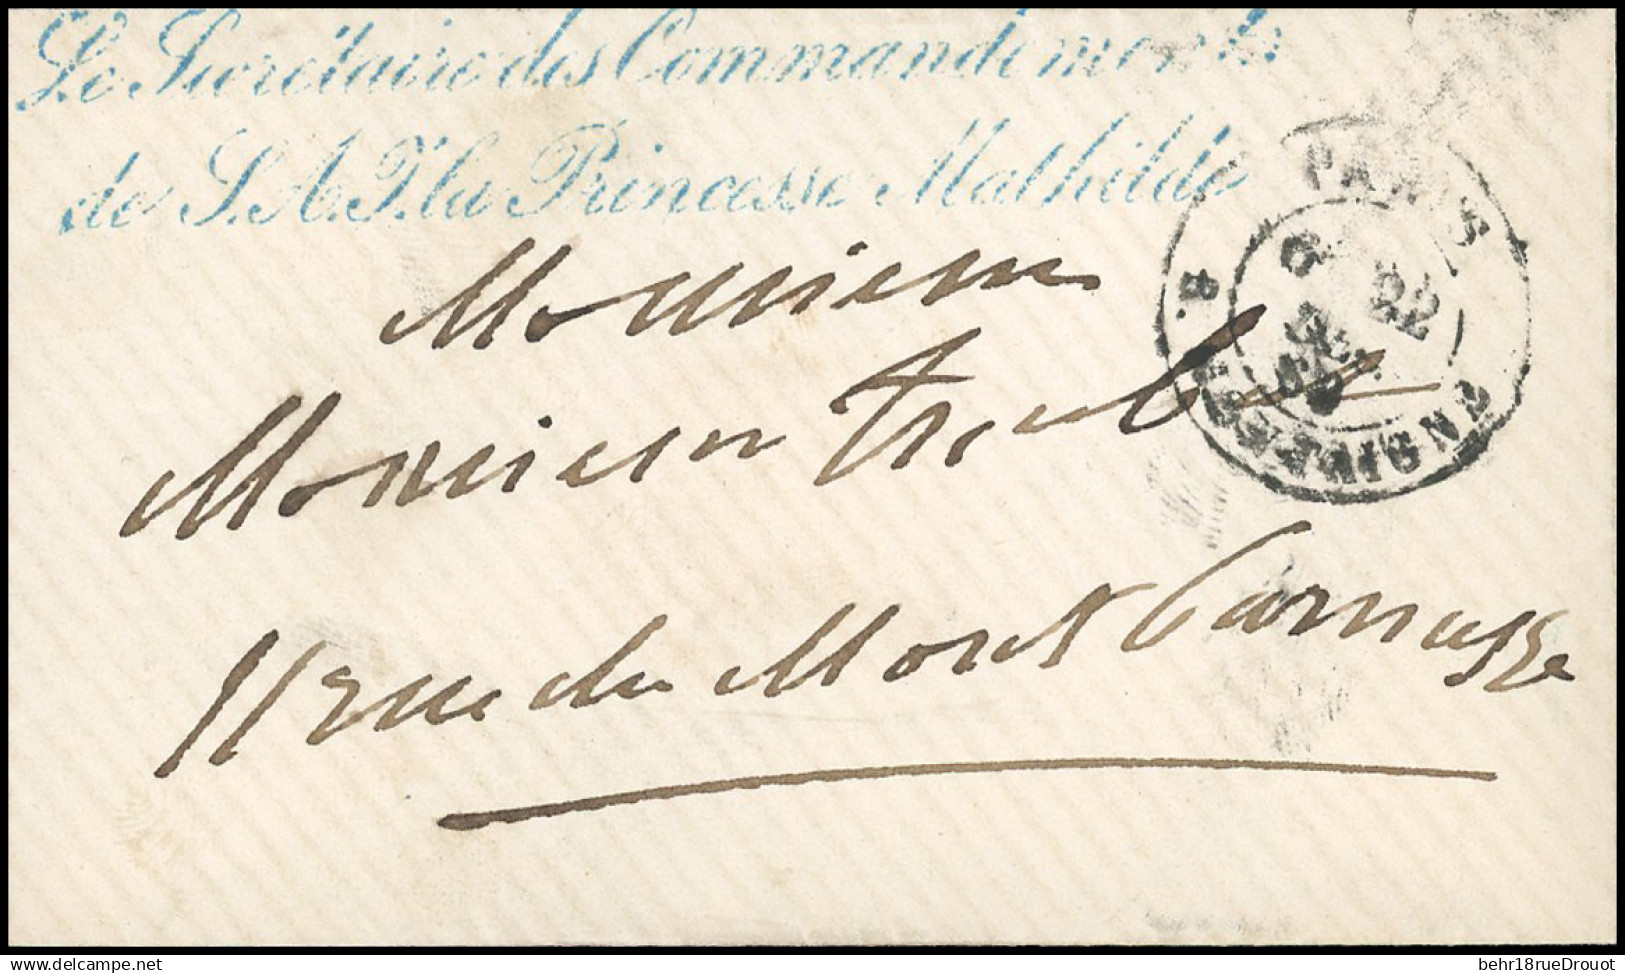 Le Secrétaire des Commandements
de S.A.I. la Princesse Mathilde
Monsieur
Monsieur
11 rue du Mont Parnasse
PARIS
6
22
R.
delcampe.net
behr18rueDrouot